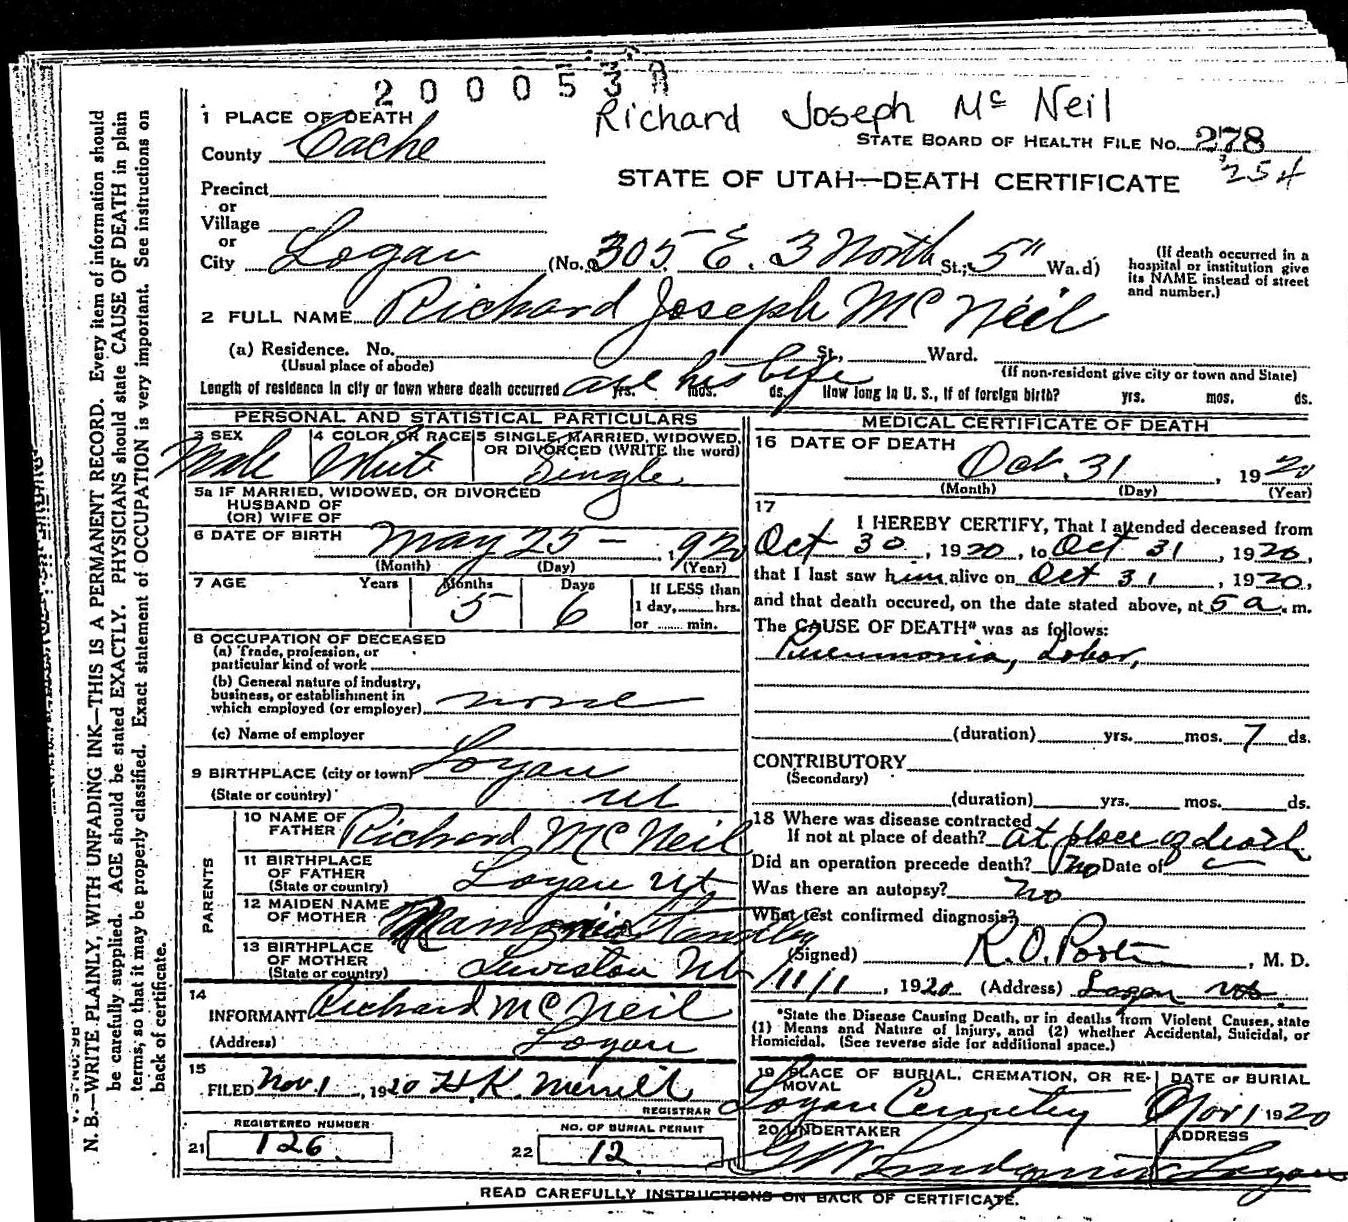 200053A
Richard Joseph Mc Neil
1 PLACE OF DEATH
STATE BOARD OF HEALTH FILE No. 278
County Cache
254
STATE OF UTAH—DEATH CERTIFICATE
Precinct
or
Village
or
City Logan (No. 305 E. 3 North St.; 5" Wa.d)
(If death occurred in a
hospital or institution give
its NAME instead of street
and number.)
2 FULL NAME Richard Joseph Mc Neil
(a) Residence. No. St., Ward.
(Usual place of abode)
(If non-resident give city or town and State)
Length of residence in city or town where death occurred all his life yrs. mos. ds. How long in U. S., if of foreign birth? yrs. mos. ds.
PERSONAL AND STATISTICAL PARTICULARS
3 SEX
Male
4 COLOR OR RACE
White
5 SINGLE, MARRIED, WIDOWED,
OR DIVORCED (WRITE the word)
Single
5a IF MARRIED, WIDOWED, OR DIVORCED
HUSBAND OF
(OR) WIFE OF
6 DATE OF BIRTH May 25 — , 1920
(Month) (Day) (Year)
7 AGE Years Months Days If LESS than
5 6 1 day, hrs.
or min.
8 OCCUPATION OF DECEASED
(a) Trade, profession, or
particular kind of work
(b) General nature of industry,
business, or establishment in
which employed (or employer) none
(c) Name of employer
9 BIRTHPLACE (city or town) Logan
(State or country) Ut
PARENTS
10 NAME OF
FATHER Richard McNeil
11 BIRTHPLACE
OF FATHER
(State or country) Logan Ut
12 MAIDEN NAME
OF MOTHER Standley
13 BIRTHPLACE
OF MOTHER
(State or country) Lewiston Ut
14
INFORMANT Richard McNeil
(Address) Logan
15
FILED Nov. 1, 1920 H. K. Merrill
REGISTRAR
REGISTERED NUMBER
21 126
NO. OF BURIAL PERMIT
22 12
MEDICAL CERTIFICATE OF DEATH
16 DATE OF DEATH
Oct. 31, 1920
(Month) (Day) (Year)
17
I HEREBY CERTIFY, That I attended deceased from
Oct 30, 1920, to Oct 31, 1920,
that I last saw him alive on Oct 31, 1920,
and that death occured, on the date stated above, at 5 a. m.
The CAUSE OF DEATH* was as follows:
Pneumonia, Lobar,
(duration) yrs. mos. 7 ds.
CONTRIBUTORY
(Secondary)
(duration) yrs. mos. ds.
18 Where was disease contracted
If not at place of death? at place of death
Did an operation precede death? No Date of
Was there an autopsy? no
What test confirmed diagnosis?
(Signed) R. O. Porter, M. D.
11/1, 1920 (Address) Logan Ut.
*State the Disease Causing Death, or in deaths from Violent Causes, state
(1) Means and Nature of Injury, and (2) whether Accidental, Suicidal, or
Homicidal. (See reverse side for additional space.)
19 PLACE OF BURIAL, CREMATION, OR RE-
MOVAL
Logan Cemetery
DATE OF BURIAL
Nov 1 1920
20 UNDERTAKER
G W Lindquist
ADDRESS
Logan
READ CAREFULLY INSTRUCTIONS ON BACK OF CERTIFICATE.
N. B.—WRITE PLAINLY, WITH UNFADING INK—THIS IS A PERMANENT RECORD. Every item of information should
be carefully supplied. AGE should be stated EXACTLY. PHYSICIANS should state CAUSE OF DEATH in plain
terms, so that it may be properly classified. Exact statement of OCCUPATION is very important. See instructions on
back of certificate.